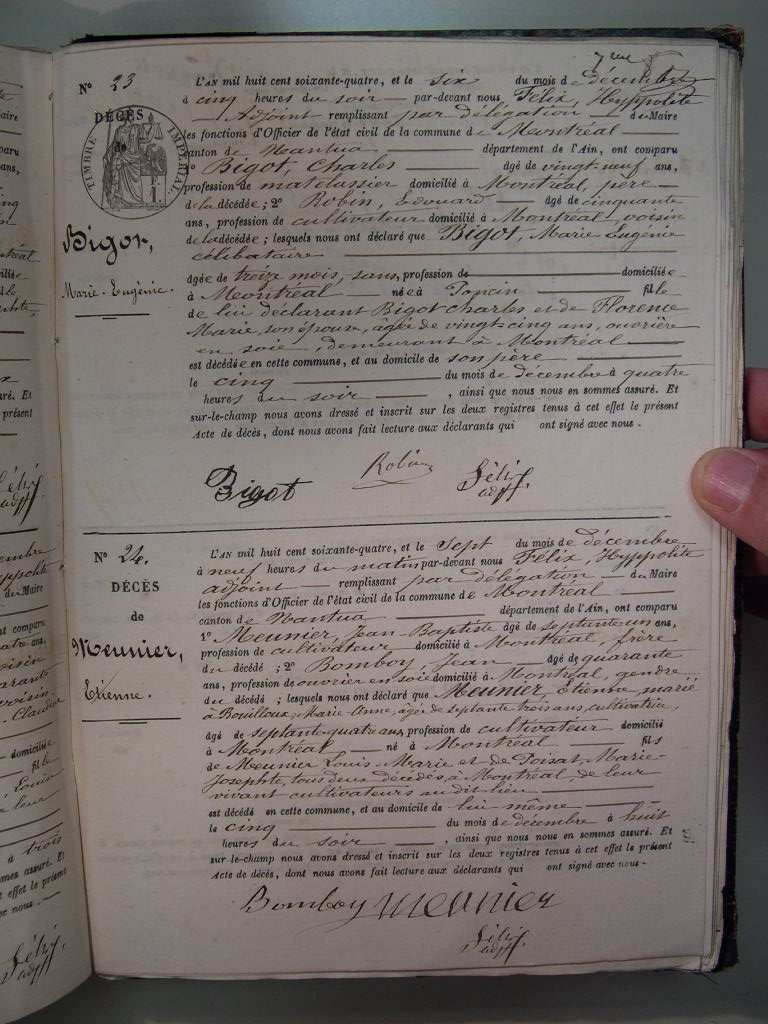 7me
N° 23
DÉCÈS
de
TIMBRE IMPÉRIAL
Bigot,
Marie-Eugénie.
L'AN mil huit cent soixante-quatre, et le six du mois de décembre
à cinq heures du soir par-devant nous Félix, Hyppolite
Adjoint remplissant par délégation du Maire
les fonctions d'Officier de l'état civil de la commune de Montréal
canton de Nantua département de l'Ain, ont comparu
Bigot, Charles âgé de vingt-neuf ans,
profession de matelassier domicilié à Montréal, père
de la décédée; 2° Robin, Edouard âgé de cinquante
ans, profession de cultivateur domicilié à Montréal voisin
de la décédée; lesquels nous ont déclaré que Bigot, Marie Eugénie
célibataire
âgée de treize mois, sans, profession de domiciliée
à Montréal née à Poncin fille
de lui déclarant Bigot Charles et de Florence
Marie, son épouse, âgée de vingt cinq ans, ouvrière
en soie, demeurant à Montréal
est décédée en cette commune, et au domicile de son père
le cinq du mois de décembre à quatre
heures du soir, ainsi que nous nous en sommes assuré. Et
sur-le-champ nous avons dressé et inscrit sur les deux registres tenus à cet effet le présent
Acte de décès, dont nous avons fait lecture aux déclarants qui ont signé avec nous.
Bigot Robin Félix
adjt.
N° 24.
DÉCÈS
de
Meunier,
Etienne.
L'AN mil huit cent soixante-quatre, et le sept du mois de décembre
à neuf heures du matin par-devant nous Félix, Hyppolite
adjoint remplissant par délégation du Maire
les fonctions d'Officier de l'état civil de la commune de Montréal
canton de Nantua département de l'Ain, ont comparu
1° Meunier, Jean-Baptiste âgé de septante un ans,
profession de cultivateur domicilié à Montréal, frère
du décédé; 2° Bomboy, Jean âgé de quarante
ans, profession de ouvrier en soie domicilié à Montréal, gendre
du décédé; lesquels nous ont déclaré que Meunier, Etienne, marié
à Bouilloux, Marie-Anne, âgée de septante trois ans, cultivatrice,
âgé de septante-quatre ans, profession de cultivateur domicilié
à Montréal né à Montréal fils
de Meunier Louis-Marie et de Poisat, Marie-
Josephte, tous deux décédés à Montréal, de leur
vivant cultivateurs au dit lieu
est décédé en cette commune, et au domicile de lui même
le cinq du mois de décembre à huit
heures du soir, ainsi que nous nous en sommes assuré. Et
sur-le-champ nous avons dressé et inscrit sur les deux registres tenus à cet effet le présent
Acte de décès, dont nous avons fait lecture aux déclarants qui ont signé avec nous.
Bomboy Meunier
Félix
adjt.